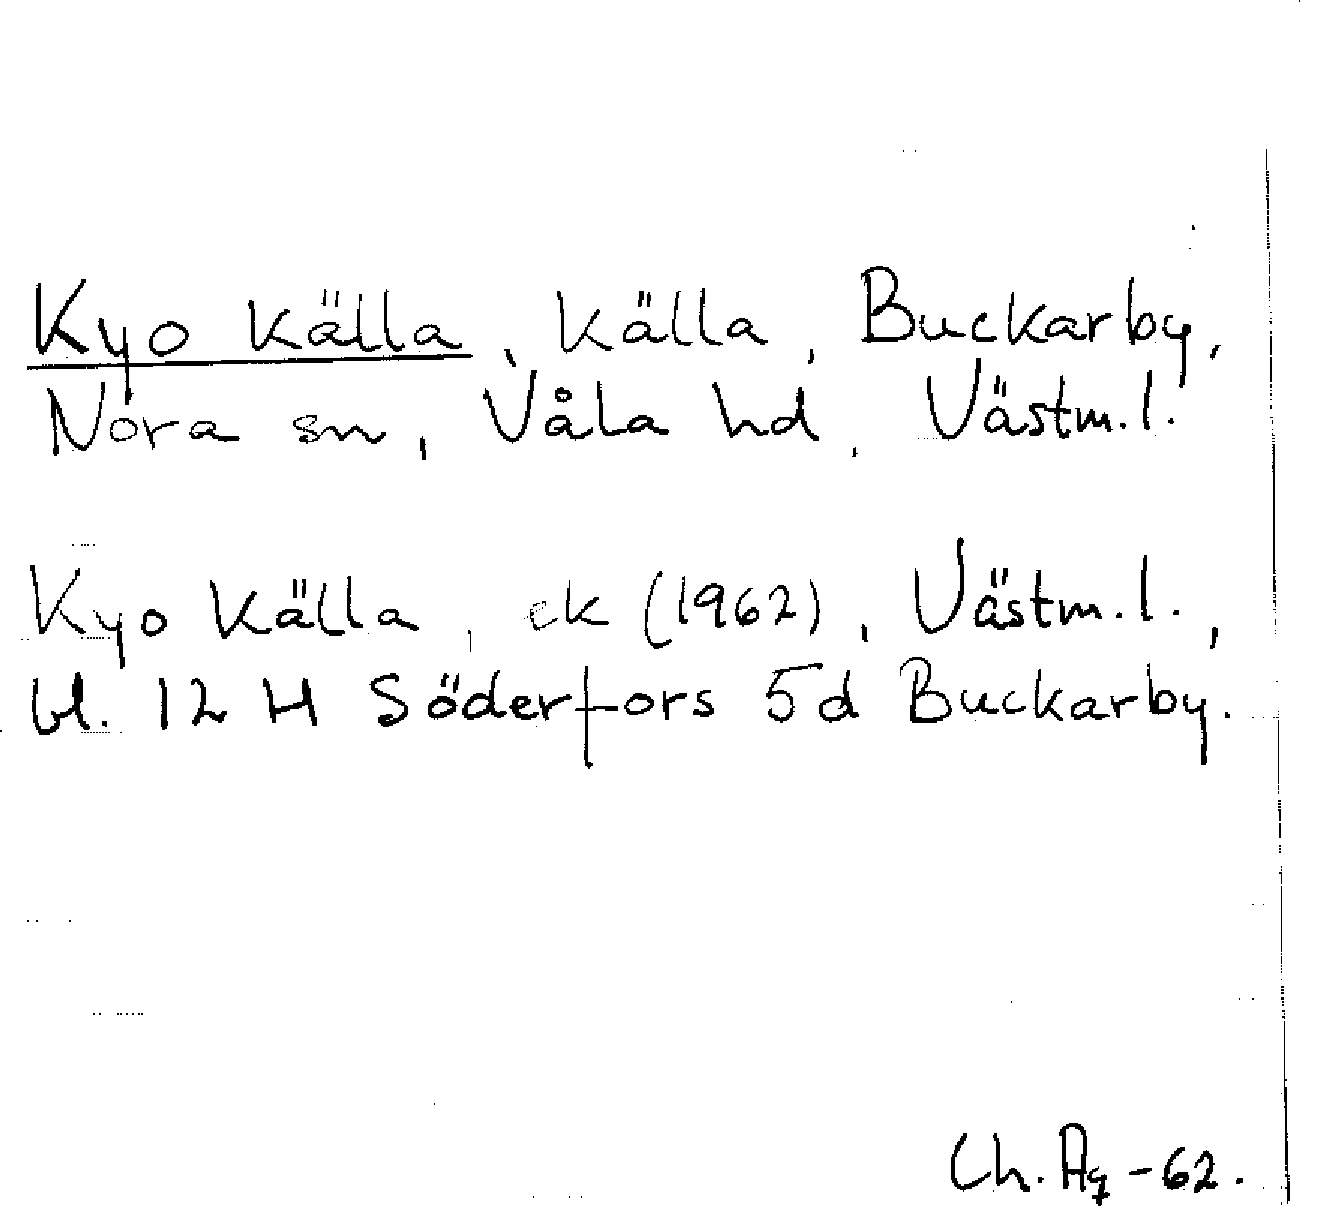 Kyo källa, källa, Buckarby,
Nora sn, Våla hd, Västm.l.
Kyo källa, ek (1962), Västm.l.,
bl. 12 H Söderfors 5d Buckarby.
Ch. Ag -62.